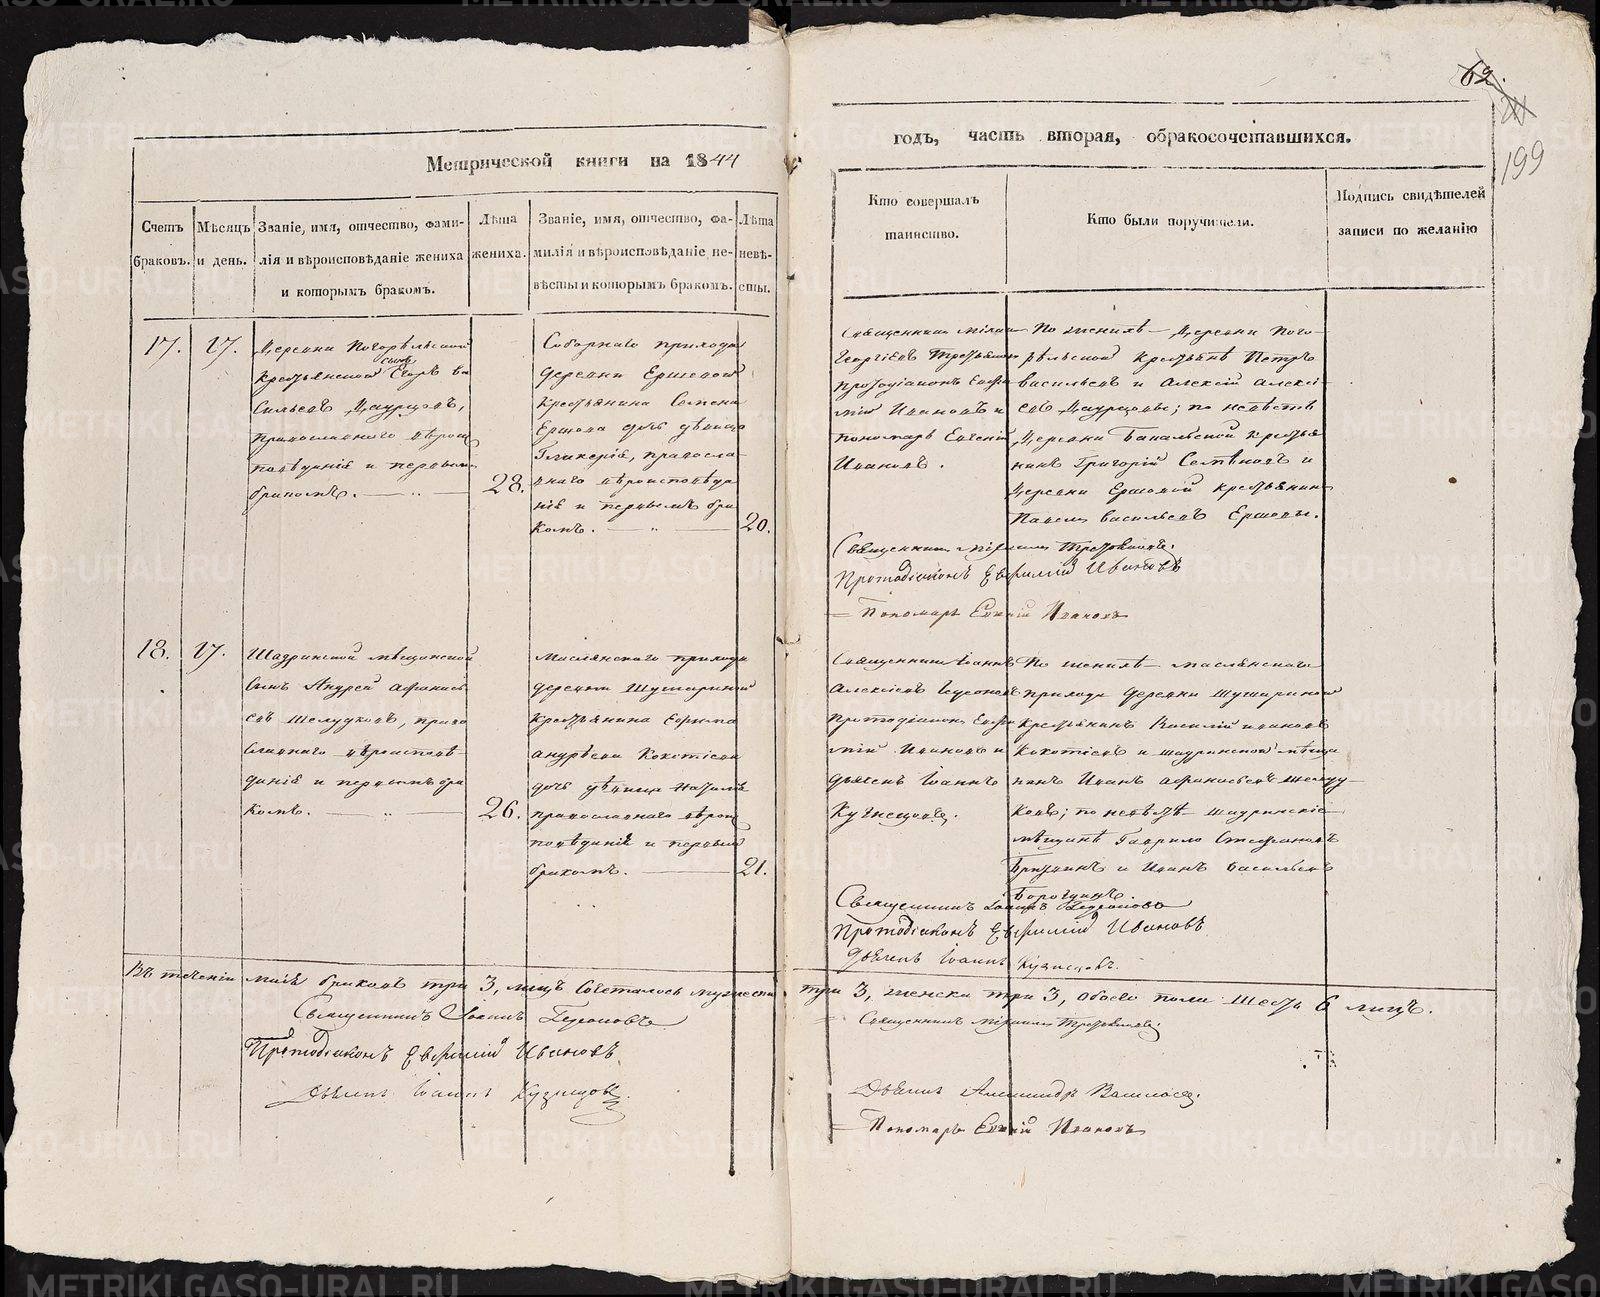 62.
199
Метрической книги на 1844
годъ, часть вторая, обракосочетавшихся.
Счетъ браковъ.
Мѣсяцъ и день.
Званіе, имя, отчество, фами-
лія и вѣроисповѣданіе жениха
и которымъ бракомъ.
Лѣта
жениха.
Званіе, имя, отчество, фа-
милія и вѣроисповѣданіе не-
вѣсты и которымъ бракомъ.
Лѣта
невѣ-
сты.
Кто совершалъ
таинство.
Кто были поручители.
Подпись свидѣтелей
записи по желанію
17.
17.
Деревни Погорѣльской
сынъ
крестьянской Егоръ Ва
сильевъ Даурцовъ,
православнаго вѣроис
повѣданія и первымъ
бракомъ.
28.
Соборнаго прихода
деревни Ершовой
крестьянина Семена
Ершова дочь дѣвица
Гликерія, правосла-
внаго вѣроисповѣда
нія и первымъ бра
комъ.
20.
Священникъ Михаилъ
Георгіевъ
протодіаконъ Евфи
мій Ивановъ и
пономарь Евгеній
Ивановъ.
По женихѣ — Деревни Пого-
рѣльской крестьяне Петръ
Васильевъ и Алексій Алексі-
евъ Даурцовы; по невѣстѣ
Деревни крестья
нинъ Григорій Семеновъ и
Деревни Ершовой крестьянинъ
Павелъ Васильевъ Ершовы.
Священникъ Михаилъ
Протодіаконъ Евфимій Ивановъ
Пономарь Евгеній Ивановъ
18.
17.
Шадринской мѣщанской
сынъ Андрей Афанась
евъ Шелудковъ, право
славнаго вѣроисповѣ
данія и первымъ бра
комъ.
26.
Маслянскаго прихода
деревни Шушариной
крестьянина Ефима
Андрѣева Кокотѣева
дочь дѣвица
православнаго вѣроис
повѣданія и первымъ
бракомъ.
21.
Священникъ Іоаннъ
Алексіевъ Гедеоновъ
протодіаконъ Евфи
мій Ивановъ и
дьячекъ Іоаннъ
Кузнецовъ.
По женихѣ — Маслянскаго
прихода деревни Шушариной
крестьянинъ Василій Ивановъ
Кокотѣевъ и шадринской мѣща
нинъ Иванъ Афанасьевъ Шелуд
ковъ; по невѣстѣ — Шадринскіе
мѣщане Гаврило Стефановъ
и Иванъ Васильевъ
Священникъ Іоаннъ Гедеоновъ
Протодіаконъ Евфимій Ивановъ
Дьячекъ Іоаннъ Кузнецовъ.
Въ теченіи браковъ три 3, лицъ сочеталось мужеска три 3, женска три 3, обоего пола шесть 6 лицъ.
Священникъ Іоаннъ Гедеоновъ
Священникъ Михаилъ
Протодіаконъ Евфимій Ивановъ
Дьячекъ Іоаннъ Кузнецовъ.
Дьячекъ Александръ
Пономарь Евгеній Ивановъ
METRIKI.GASO-URAL.RU